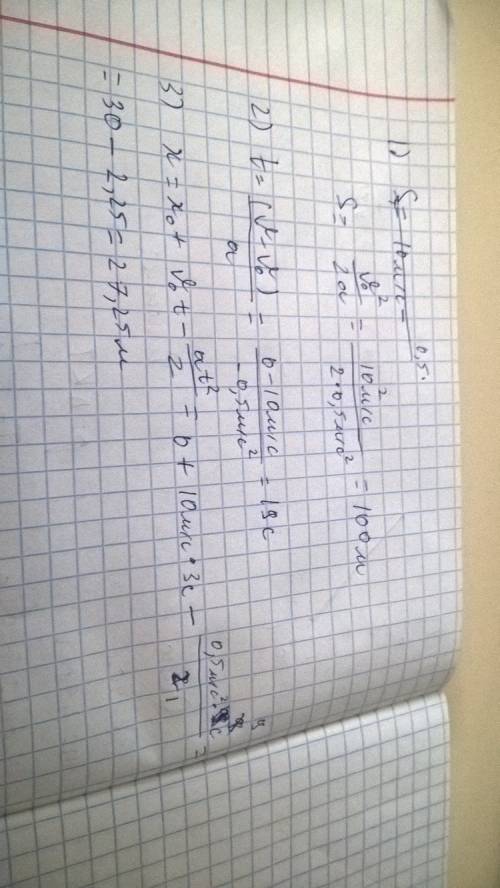 1) S = 10 м/с = / 0,5.
S = v₀² / 2a = 10² м/с / 2 · 0,5 м/с² = 100 м
2) t = (v - v₀) / a = 0 - 10 м/с / - 0,5 м/с² = 19 с
3) x = x₀ + v₀t - at² / 2 = 0 + 10 м/с · 3с - 0,5 м/с² / 2 =
= 30 - 2,25 = 27,25 м